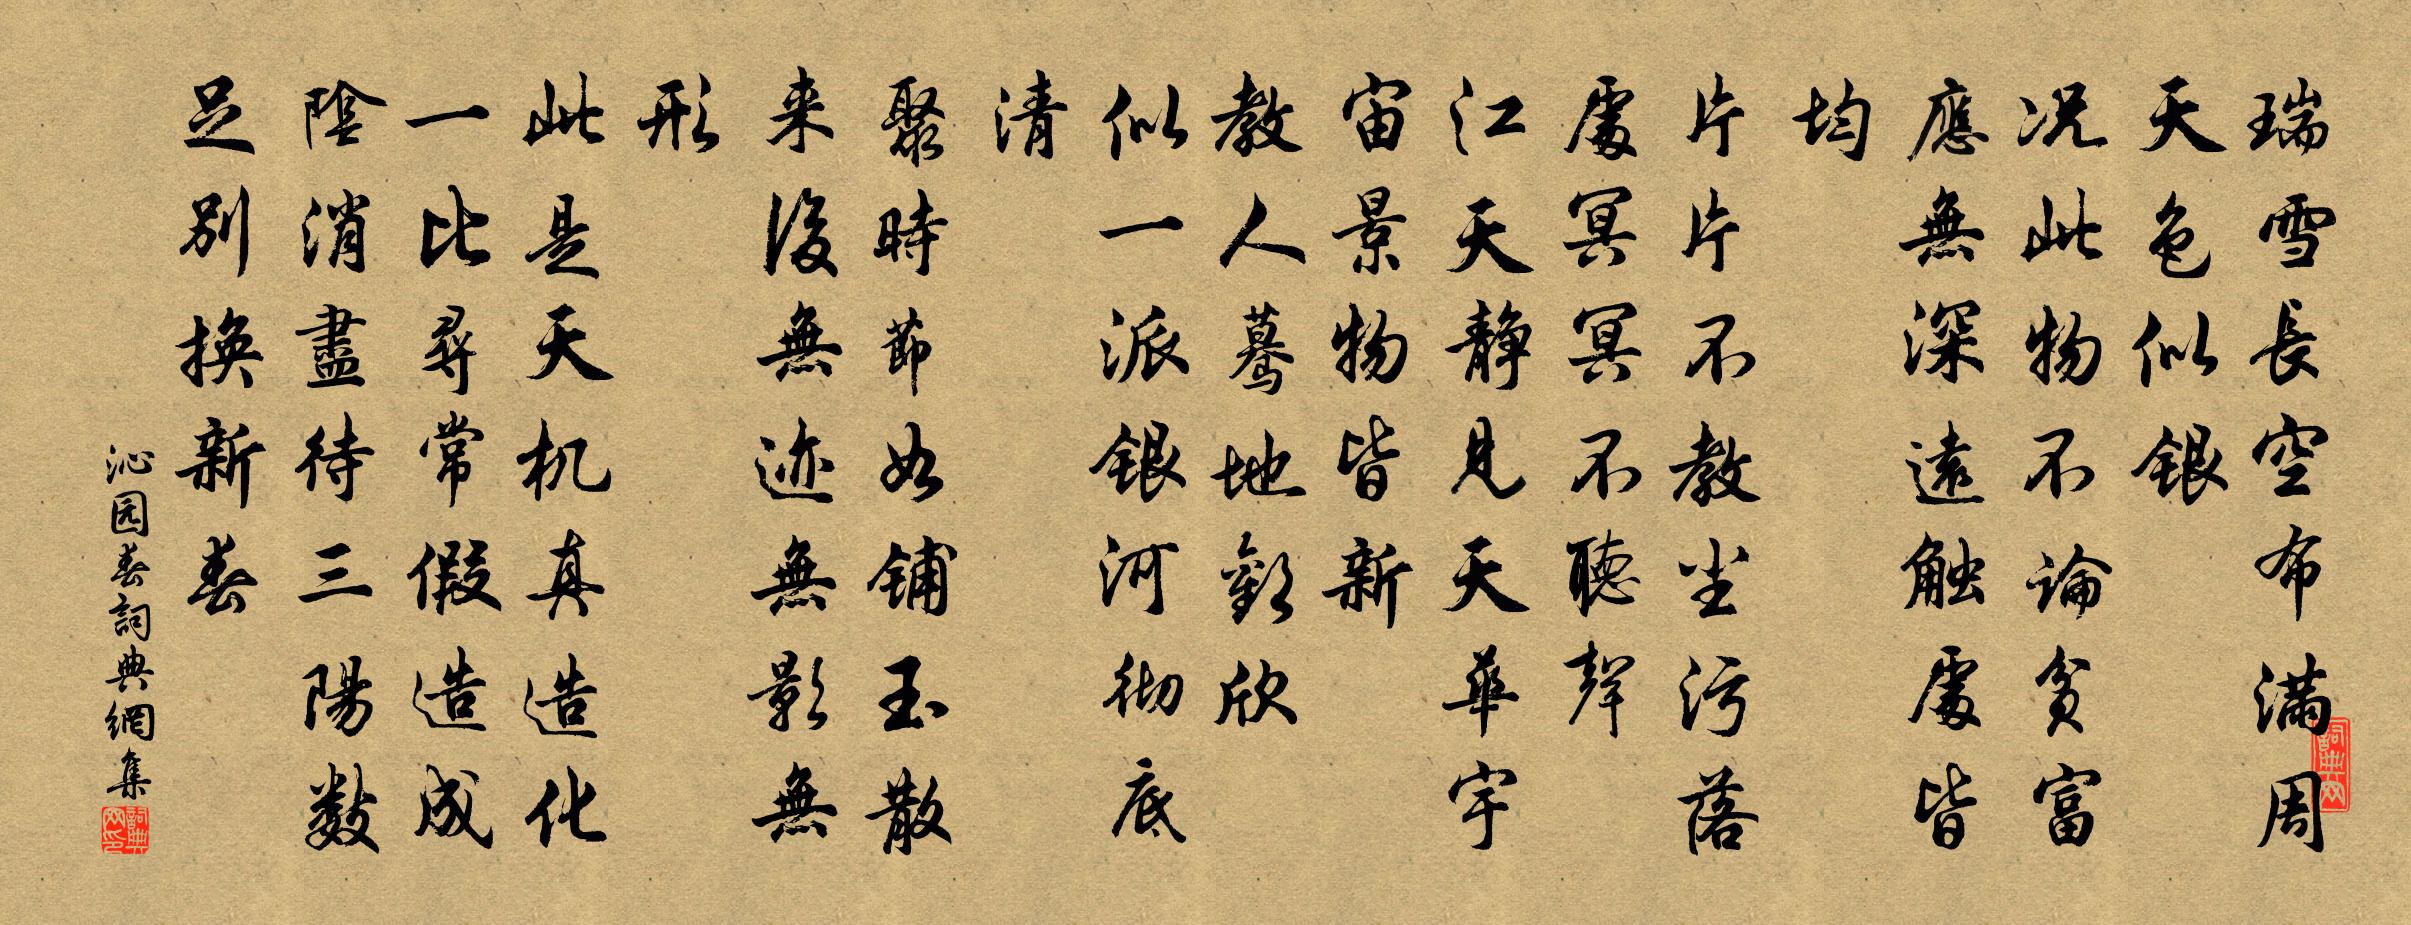 瑞雪長空布满周
天色似銀
况此物不論貧富
應無深遠触處皆
均
片片不教尘污落
處冥冥不聽聲
江天静見天華宇
宙景物皆新
教人驀地歡欣
似一派銀河彻底
清
聚時節如铺玉散
来後無迹無影無
形
此是天机真造化
一比尋常假造成
陰消盡待三陽数
足别换新春
沁园春詞典網集
詞典网
詞典网印